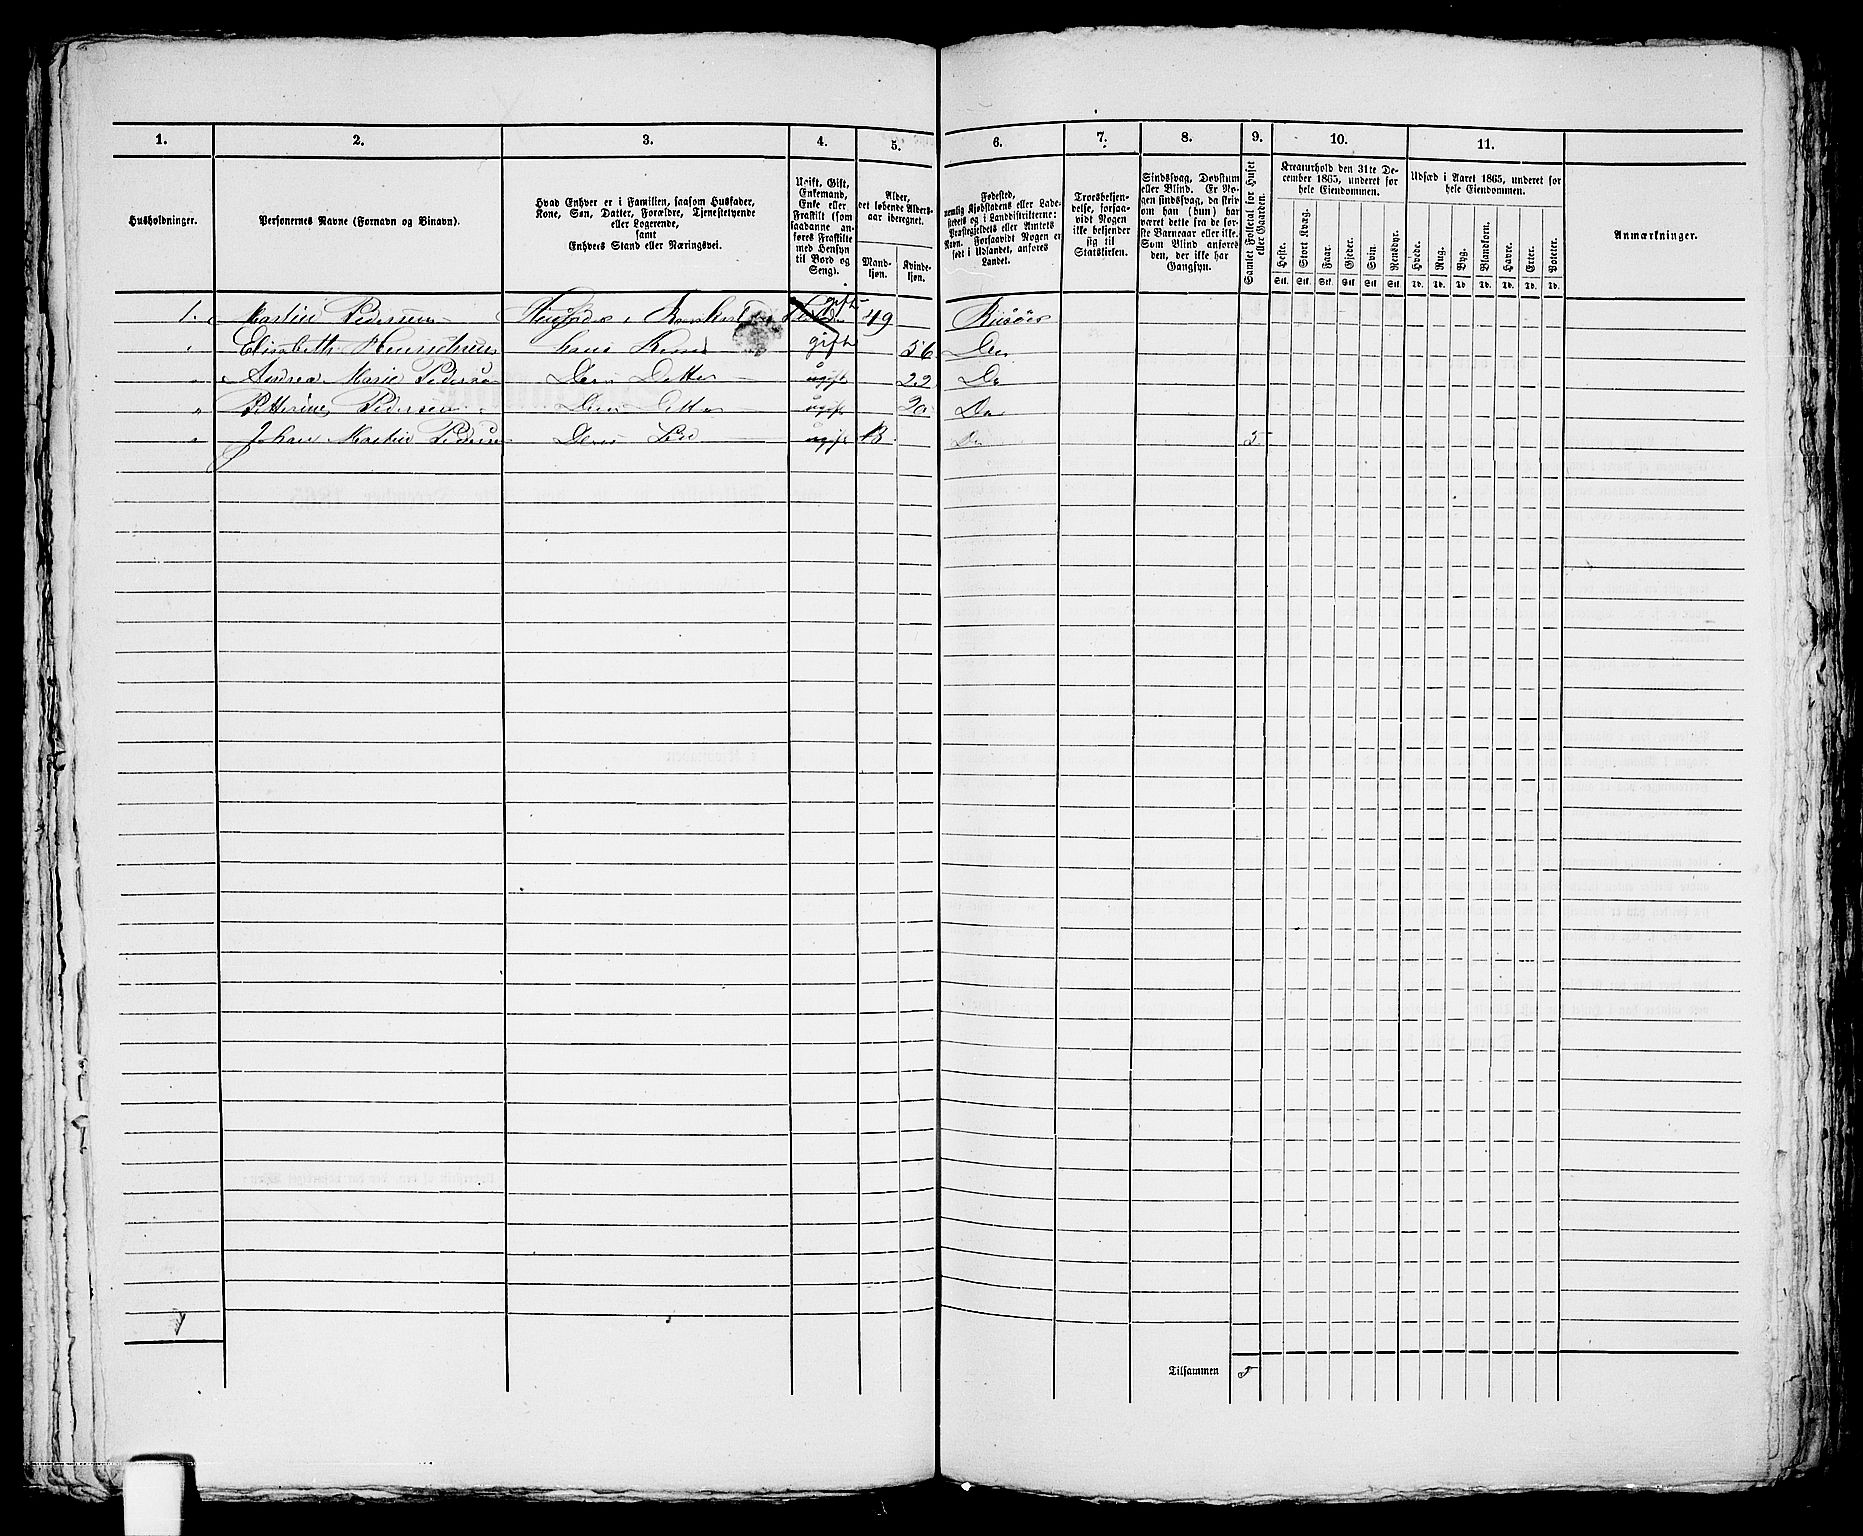 1. 2. 3. 4. 5. 6. 7. 8. 9. 10. 11.
Husholdninger.
Personernes Navne (Fornavn og Binavn).
Hvad Enhver er i Familien, saasom Husfader,
Kone, Søn, Datter, Forældre, Tjenestetyende
eller Logerende,
samt
Enhvers Stand eller Næringsvei.
Ugift, Gift,
Enkemand,
Enke eller
Fraskilt (som
saadanne an-
føres Fraskilte
med Hensyn
til Bord og
Seng).
Alder,
det løbende Alders-
aar iberegnet.
Mand-
kjøn.
Kvinde-
kjøn.
Fødested,
nemlig Kjøbstadens eller Lade-
stedets og i Landdistrikterne:
Præstegjeldets eller Amtets
Navn. Forsaavidt Nogen er
født i Udlandet, anføres
Landet.
Troesbekjen-
delse, forsaa-
vidt Nogen
ikke bekjender
sig til
Statskirken.
Sindssvag, Døvstum
eller Blind. Er No-
gen sindssvag, da skriv
om han (hun) har
været dette fra de før-
ste Barneaar eller ikke.
Som Blind anføres
den, der ikke har
Gangsyn.
Samlet Folketal for Huset
eller Gaarden.
Kreaturhold den 31te De-
cember 1865, underet for
hele Eiendommen.
Heste. Stort Kvæg. Faar. Gjeder. Svin. Rensdyr.
Stk. Stk. Stk. Stk Stk Stk.
Udsæd i Aaret 1865, underet for
hele Eiendommen.
Hvede. Rug. Byg. Blandkorn. Havre. Erter. Poteter.
Td. Td. Td Td. Td. Td. Td.
Anmærkninger.
1. Martin Pedersen gift 49 Risöer
" Elisabeth Henrichsen hans Kone gift 56 Do
" Andrea Marie Pedersen Deres Detter ugift 22 Do
" Petterine Pedersen Deres Detter ugift 20 Do
" Johan Martin Pedersen Deres ugift 13 Do 5
Tilsammen 5